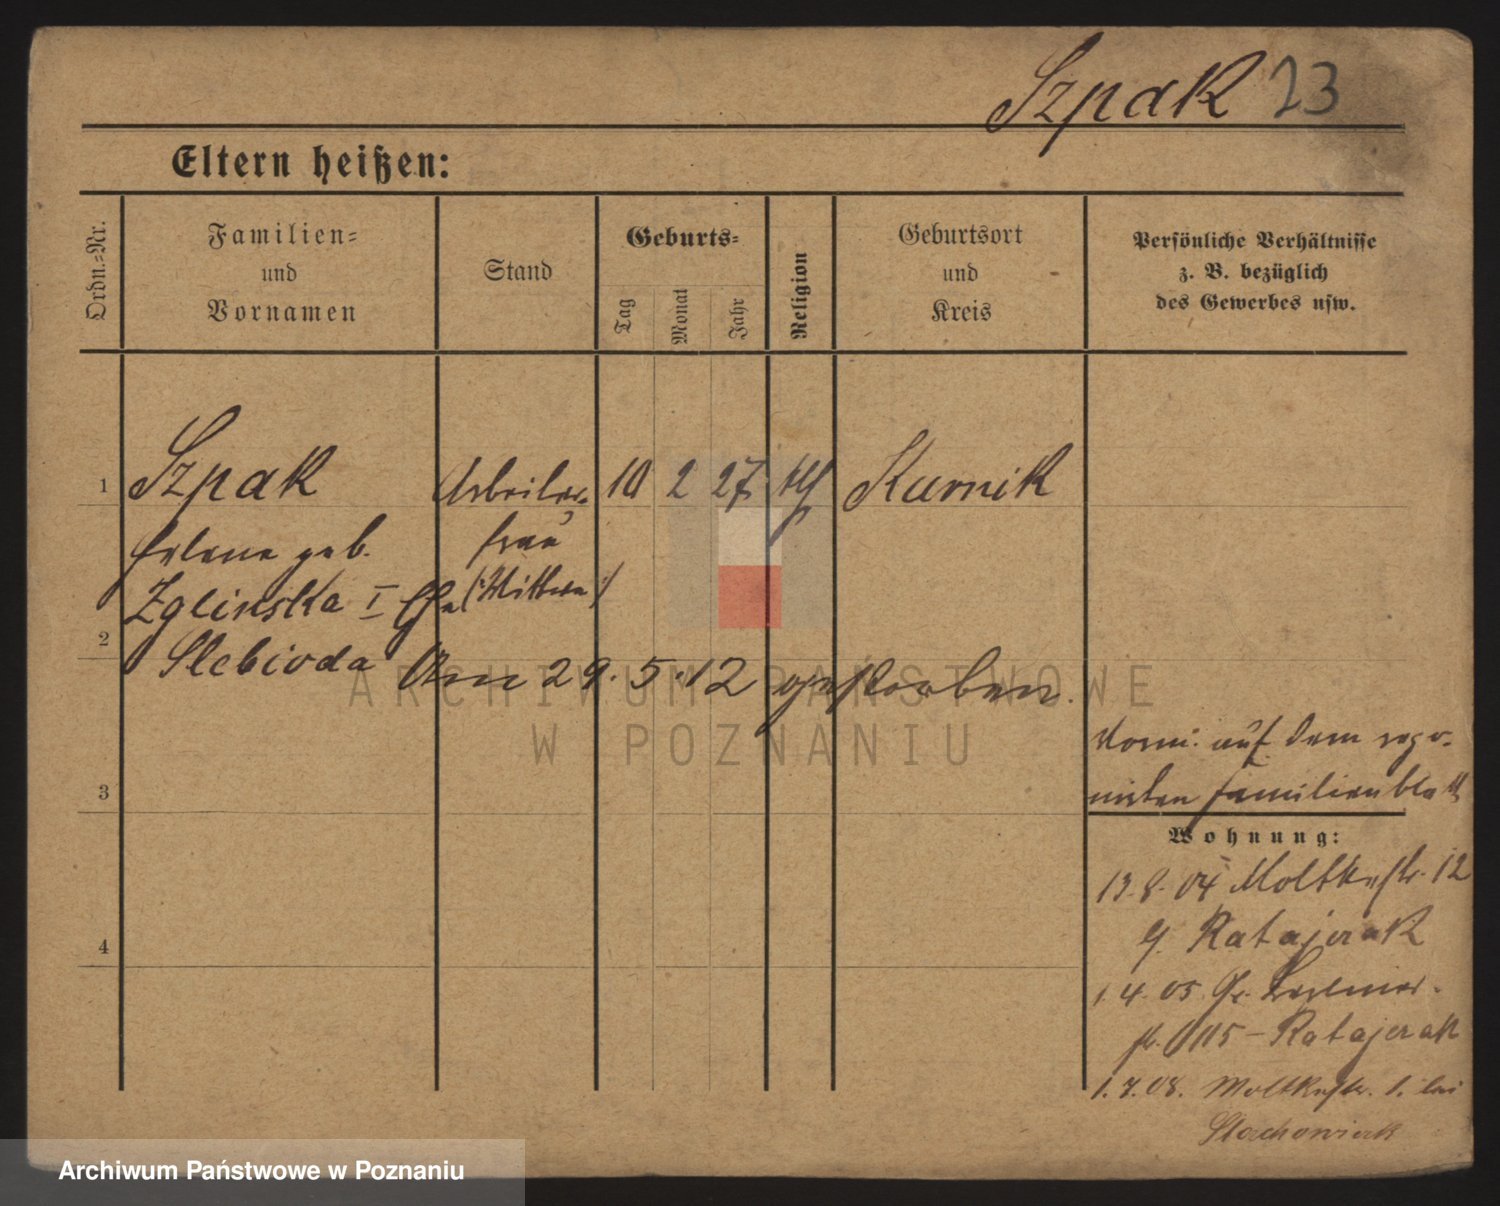 Szpak 23
Eltern heißen:
Ordn.=Nr.
Familien=
und
Vornamen
Stand
Geburts=
Tag
Monat
Jahr
Religion
Geburtsort
und
Kreis
Persönliche Verhältnisse
z. B. bezüglich
des Gewerbes usw.
1 Szpak Arbeiter- 10 2 27 Kurnik
Helene geb. frau
Zglinska I Ehe (:Wittwe:)
2
Slebioda Am 29.5.12 gestorben.
ARCHIWUM PAŃSTWOWE
W POZNANIU
auf dem
3 Familienblatt
Wohnung:
13.8.04 Moltkestr. 12
4 Ratajczak
1.4.05 Gr. Berliner-
str. 115 - Ratajczak
1.7.08. Moltkestr. 1. bei
Stachowiak
Archiwum Państwowe w Poznaniu